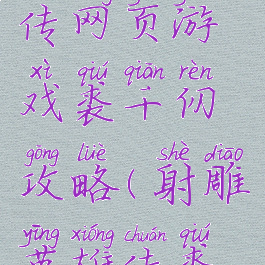 传网页游
xì qiú qiān rèn
戏裘千仞
gōng lüè shè diāo
攻略(射雕
yīng xióng chuán qiú
英雄传裘